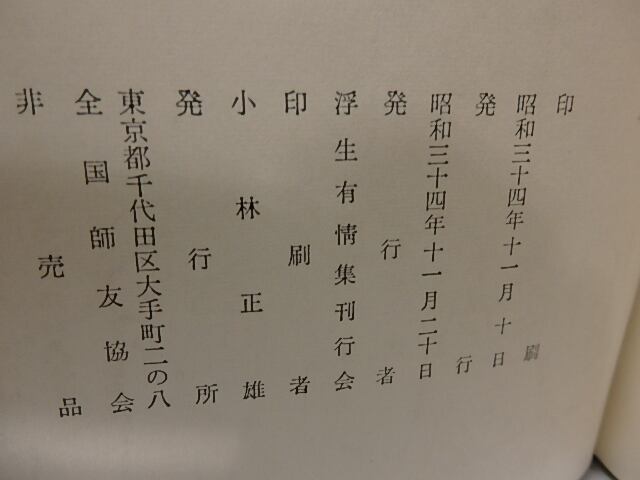 印刷
昭和三十四年十一月十日
発行
昭和三十四年十一月二十日
発行者
浮生有情集刊行会
印刷者
小林正雄
発行所
東京都千代田区大手町二の八
全国師友協会
非売品